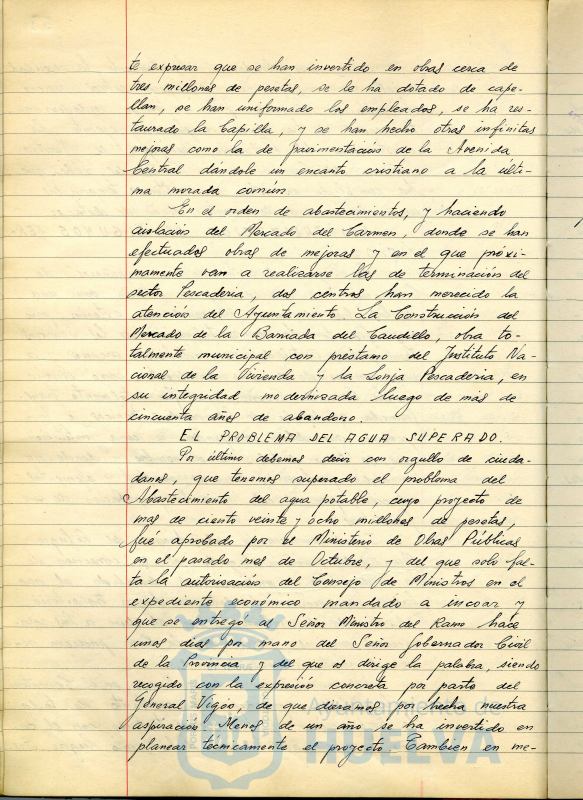 te expresar que se han invertido en obras cerca de
tres millones de pesetas, se le ha dotado de cape-
llan, se han uniformado los empleados, se ha res-
taurado la Capilla, y se han hecho otras infinitas
mejoras como la de pavimentación de la Avenida
Central dándole un encanto cristiano a la últi-
ma morada común.
En el orden de abastecimientos, y haciendo
aislación del Mercado del Carmen, donde se han
efectuados obras de mejoras y en el que próxi-
mamente van a realizarse las de terminación del
sector Pescaderia, dos centros han merecido la
atención del Ayuntamiento. La Construcción del
Mercado de la Barriada del Caudillo, obra to-
talmente municipal con préstamo del Instituto Na-
cional de la Vivienda y la Lonja Pescaderia, en
su integridad modernizada luego de más de
cincuenta años de abandono.
EL PROBLEMA DEL AGUA SUPERADO.
Por último debemos decir con orgullo de ciuda-
danos, que tenemos superado el problema del
Abastecimiento del agua potable, cuyo proyecto de
mas de ciento veinte y ocho millones de pesetas,
fué aprobado por el Ministerio de Obras Públicas
en el pasado mes de Octubre, y del que solo fal-
ta la autorización del Consejo de Ministros en el
expediente económico mandado a incoar y
que se entregó al Señor Ministro del Ramo hace
unos días por mano del Señor Gobernador Civil
de la Provincia y del que os dirige la palabra, siendo
recogido con la expresión concreta por parte del
General Vigón, de que dieramos por hecha nuestra
aspiración. Menos de un año se ha invertido en
planear técnicamente el proyecto. Tambien en me-
Ayuntamiento de
HUELVA